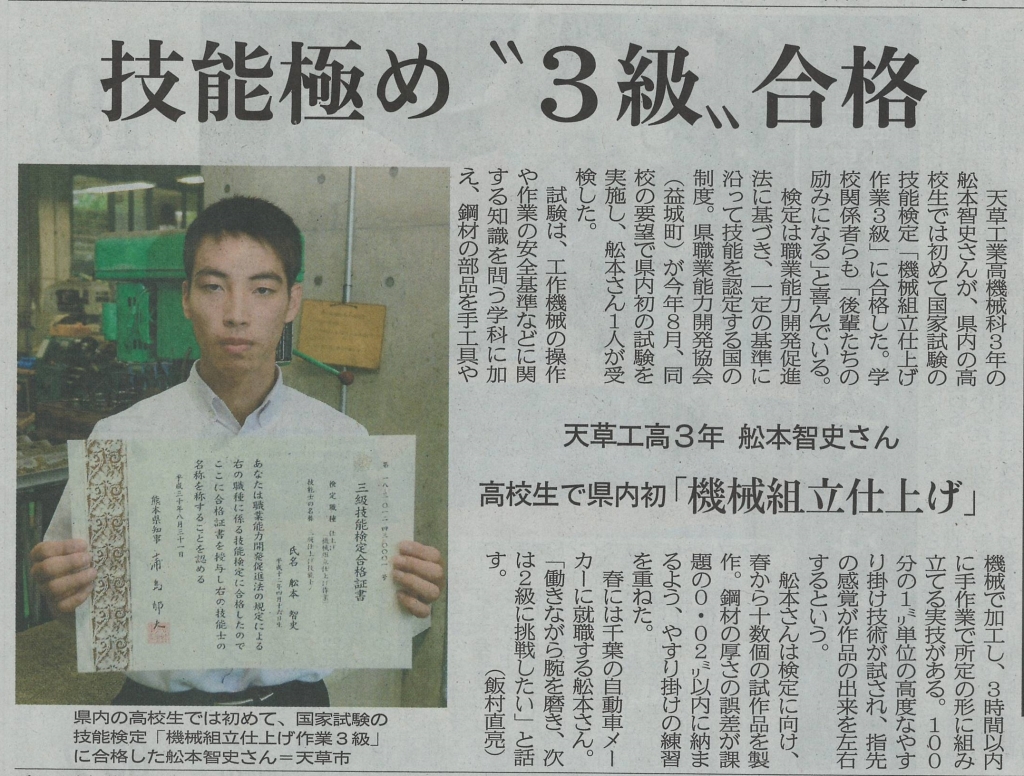 技能極め〝３級〟合格
天草工業高機械科３年の
舩本智史さんが、県内の高
校生では初めて国家試験の
技能検定「機械組立仕上げ
作業３級」に合格した。学
校関係者らも「後輩たちの
励みになる」と喜んでいる。
検定は職業能力開発促進
法に基づき、一定の基準に
沿って技能を認定する国の
制度。県職業能力開発協会
（益城町）が今年８月、同
校の要望で県内初の試験を
実施し、舩本さん１人が受
検した。
試験は、工作機械の操作
や作業の安全基準などに関
する知識を問う学科に加
え、鋼材の部品を手工具や
天草工高３年 舩本智史さん
高校生で県内初「機械組立仕上げ」
機械で加工し、３時間以内
に手作業で所定の形に組み
立てる実技がある。１００
分の１㍉単位の高度なやす
り掛け技術が試され、指先
の感覚が作品の出来を左右
するという。
舩本さんは検定に向け、
春から十数個の試作品を製
作。鋼材の厚さの誤差が課
題の０・０２㍉以内に納ま
るよう、やすり掛けの練習
を重ねた。
春には千葉の自動車メー
カーに就職する舩本さん。
「働きながら腕を磨き、次
は２級に挑戦したい」と話
す。　　　（飯村直亮）
三級技能検定合格証書
検定職種
技能士の名称
氏名 舩本 智史
あなたは職業能力開発促進法の規定による
右の職種に係る技能検定に合格したので
ここに合格証書を授与し右の技能士の
名称を称することを認める
平成三十年八月三十一日
熊本県知事 蒲島郁夫
県内の高校生では初めて、国家試験の
技能検定「機械組立仕上げ作業３級」
に合格した舩本智史さん＝天草市